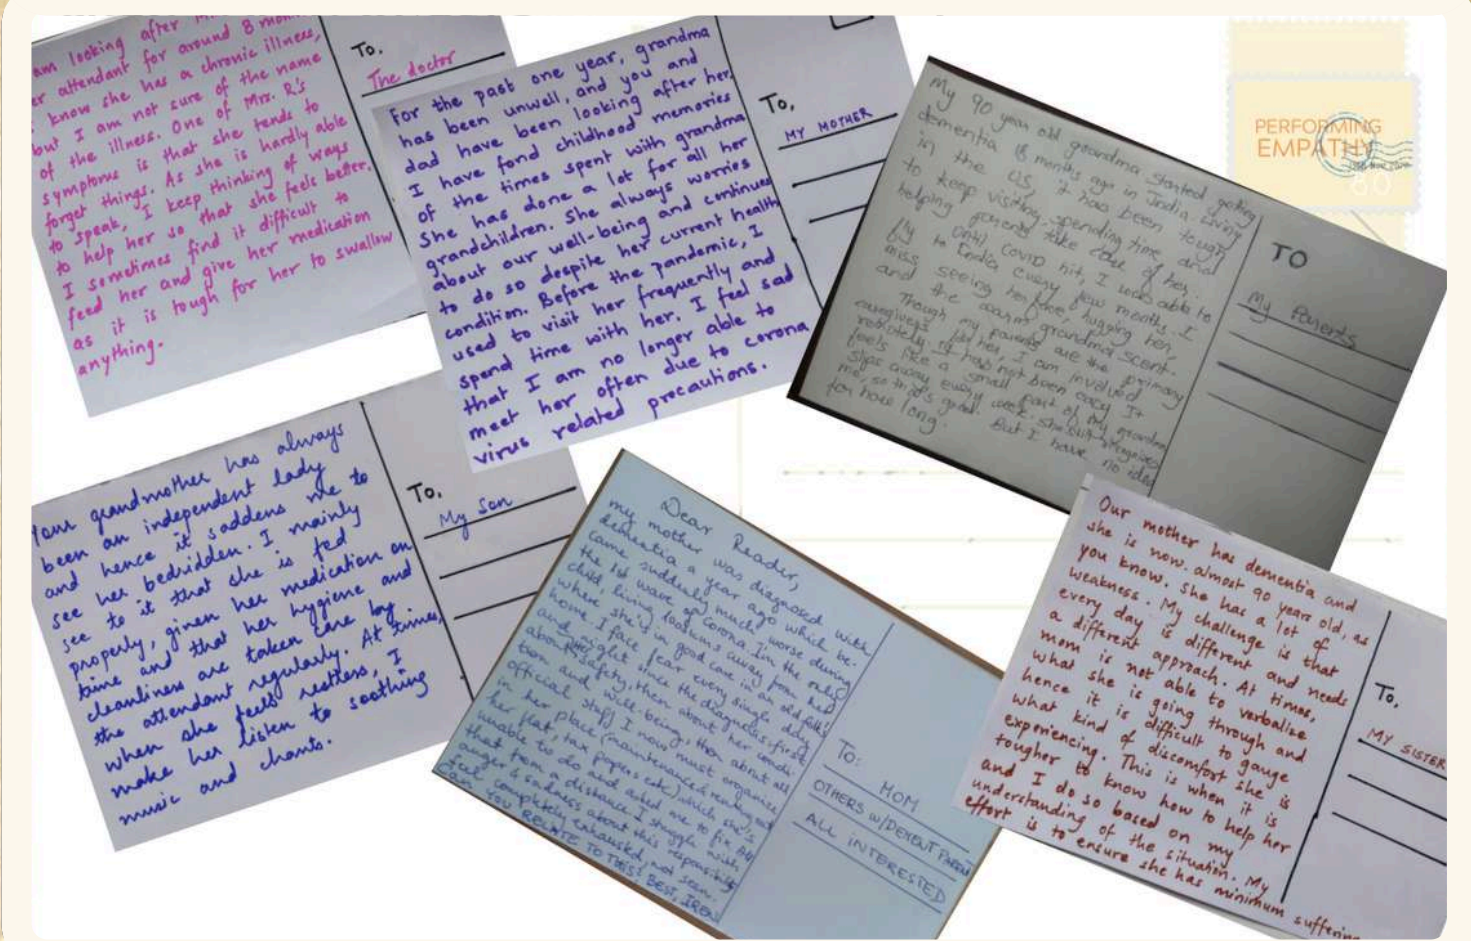 am looking after
er attendant for around 8 mon
know she has a chronic illness,
but I am not sure of the name
of the illness. One of Mrs. R's
symptoms is that she tends to
forget things. As she is hardly able
to speak, I keep thinking of ways
to help her so that she feels better.
I sometimes find it difficult to
feed her and give her medication
as it is tough for her to swallow
anything.
To,
The doctor
For the past one year, grandma
has been unwell, and you and
dad have been looking after her.
I have fond childhood memories
of the times spent with grandma
She has done a lot for all her
grandchildren. She always worries
about our well-being and continues
to do so despite her current health
condition. Before the pandemic, I
used to visit her frequently and
spend time with her. I feel sad
that I am no longer able to
meet her often due to corona
virus related precautions.
To,
MY MOTHER
My 90 year old grandma started getting
dementia 18 months ago in India. Living
in the US, it has been tough
to keep visiting, spending time and
helping parents take care of her.
Until covid hit, I was able to
fly to India every few months. I
miss seeing her face, hugging her,
and the warm grandma scent.
Though my parents are the primary
caregivers for her, I am involved
remotely. It has not been easy. It
feels like a small part of my grandma
slips away every week. She still recognises
me, so that's good. But I have no idea
for how long.
TO
My Parents
PERFORMING
EMPATHY
80
Your grandmother has always
been an independent lady
and hence it saddens me to
see her bedridden. I mainly
see to it that she is fed
properly, given her medication on
time and that her hygiene and
cleanliness are taken care by
the attendant regularly. At times,
when she feels restless, I
make her listen to soothing
music and chants.
To,
My Son
Dear Reader,
my mother was diagnosed with
dementia a year ago which be-
came suddenly much worse during
the 1st wave of Corona. I'm the only
child, living 600kms away from her
where she's in good care in an old folks'
home. I face fear every single day
and night since the diagnosis: first
about her safety, then about her condi-
tion and well-being, then about all
official stuff I now must organize
in her place (maintenance & renting out
her flat, tax papers etc) which she's
unable to do and asked me to fix. All
that from a distance. I struggle with
anger & sadness about this responsibility
feel completely exhausted, not seen.
Can you
RELATE TO THIS? BEST, IREN
TO:
MOM
OTHERS W/DEMENT PARENT
ALL INTERESTED
Our mother has dementia and
she is now almost 90 years old, as
you know. She has a lot of
weakness. My challenge is that
every day is different and needs
a different approach. At times,
mom is not able to verbalize
what she is going through and
hence it is difficult to gauge
what kind of discomfort she is
experiencing. This is when it is
tougher to know how to help her
and I do so based on my
understanding of the situation. My
effort is to ensure she has minimum suffering
To,
MY SISTER